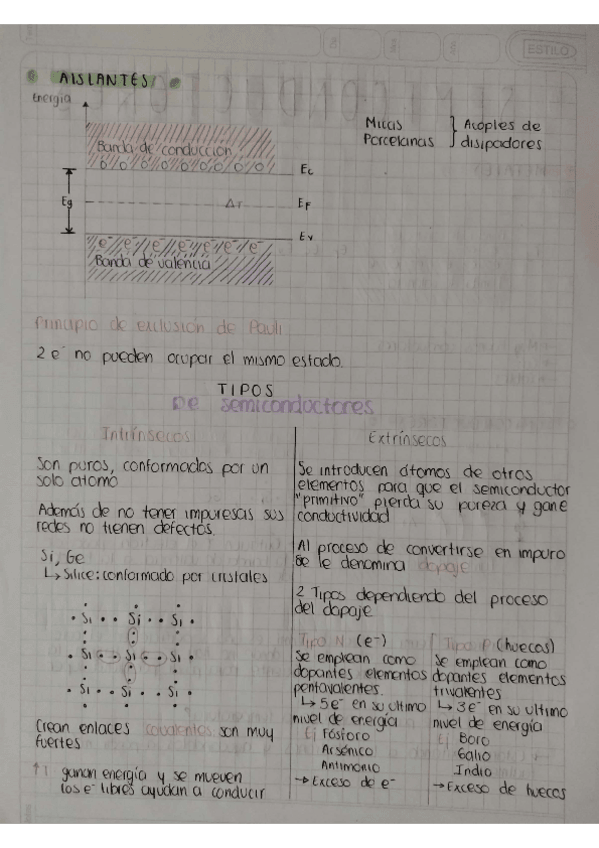 ESTILO
AISLANTES
Energía
Micas
Porcelanas
Acoples de
disipadores
Banda de conducción
Ec
Eg
EF
Ev
e⁻ e⁻ e⁻ e⁻ e⁻ e⁻ e⁻
Banda de valencia
Principio de exclusión de Pauli
2 e⁻ no pueden ocupar el mismo estado.
TIPOS
DE semiconductores
Intrínsecos
Son puros, conformados por un
solo atomo
Además de no tener impuresas sus
redes no tienen defectos.
Si, Ge
↳ Silice: conformado por cristales
Si Si Si
Si Si Si
Si Si Si
Crean enlaces covalentes son muy
fuertes
ganan energía y se mueven
los e⁻ libres ayudan a conducir
Extrínsecos
Se introducen átomos de otros
elementos para que el semiconductor
"primitivo" pierda su pureza y gane
conductividad
Al proceso de convertirse en impuro
se le denomina dopaje
2 Tipos dependiendo del proceso
del dopaje
Tipo N (e⁻)
Se emplean como
dopantes elementos
pentavalentes.
↳ 5e⁻ en su ultimo
nivel de energía
Ej Fósforo
Arsénico
Antimonio
→ Exceso de e⁻
Tipo P (huecos)
Se emplean como
dopantes elementos
trivalentes
↳ 3e⁻ en su ultimo
nivel de energía
Ej Boro
Galio
Indio
→ Exceso de huecos